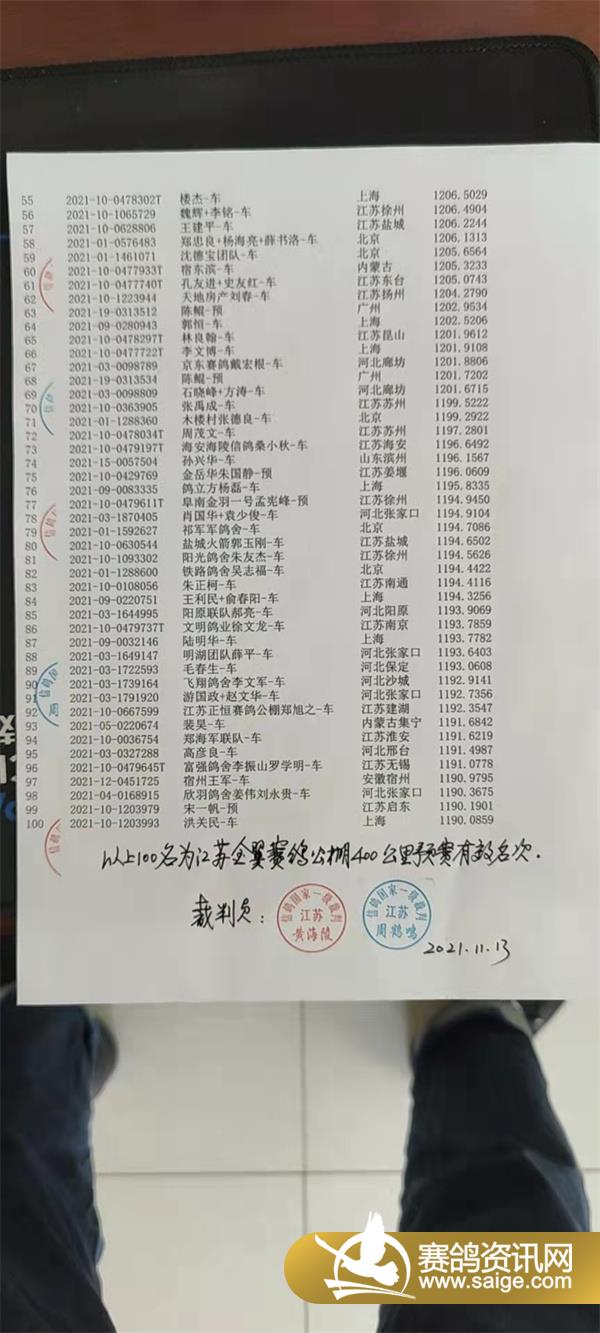 55 2021-10-0478302T 楼杰-车 上海 1206.5029
56 2021-10-1065729 魏辉+李铭-车 江苏徐州 1206.4904
57 2021-10-0628806 王建平-车 江苏盐城 1206.2244
58 2021-01-0576483 郑忠良+杨海亮+薛书洛-车 北京 1206.1313
59 2021-01-1461071 沈德宝团队-车 北京 1205.6564
60 2021-10-0477933T 宿东滨-车 内蒙古 1205.3233
61 2021-10-0477740T 孔友进+史友红-车 江苏东台 1205.0743
62 2021-10-1223944 天地房产刘春-车 江苏扬州 1204.2790
63 2021-19-0313512 陈鲲-预 广州 1202.9534
64 2021-09-0280943 郭恒-车 上海 1202.5206
65 2021-10-0478297T 林良翰-车 江苏昆山 1201.9612
66 2021-10-0477722T 李文博-车 上海 1201.9108
67 2021-03-0098789 京东赛鸽戴宏根-车 河北廊坊 1201.8806
68 2021-19-0313534 陈鲲-预 广州 1201.7202
69 2021-03-0098809 石晓峰+方涛-车 河北廊坊 1201.6715
70 2021-10-0363905 张禹成-车 江苏苏州 1199.5222
71 2021-01-1288360 木楼村张德良-车 北京 1199.2922
72 2021-10-0478034T 周茂文-车 江苏苏州 1197.2801
73 2021-10-0479197T 海安海陵信鸽桑小秋-车 江苏海安 1196.6492
74 2021-15-0057504 孙兴华-车 山东滨州 1196.1567
75 2021-10-0429769 金岳华朱国静-预 江苏姜堰 1196.0609
76 2021-09-0083335 鸽立方杨磊-车 上海 1195.8335
77 2021-10-0479611T 阜南金羽一号孟宪峰-预 江苏徐州 1194.9450
78 2021-03-1870405 肖国华+袁少俊-车 河北张家口 1194.9104
79 2021-01-1592627 祁军军鸽舍-车 北京 1194.7086
80 2021-10-0630544 盐城火箭郭玉刚-车 江苏盐城 1194.6502
81 2021-10-1093302 阳光鸽舍朱友杰-车 江苏徐州 1194.5626
82 2021-01-1288600 铁路鸽舍吴志福-车 北京 1194.4422
83 2021-10-0108056 朱正柯-车 江苏南通 1194.4116
84 2021-09-0220751 王利民+俞春阳-车 上海 1194.3256
85 2021-03-1644995 阳原联队郝亮-车 河北阳原 1193.9069
86 2021-10-0479737T 文明鸽业徐文龙-车 江苏南京 1193.7859
87 2021-09-0032146 陆明华-车 上海 1193.7782
88 2021-03-1649147 明湖团队薛平-车 河北张家口 1193.6403
89 2021-03-1722593 毛春生-车 河北保定 1193.0608
90 2021-03-1739164 飞翔鸽舍李文军-车 河北沙城 1192.9141
91 2021-03-1791920 游国政+赵文华-车 河北张家口 1192.7356
92 2021-10-0667599 江苏正恒赛鸽公棚郑旭之-车 江苏建湖 1192.3547
93 2021-05-0220674 裴昊-车 内蒙古集宁 1191.6842
94 2021-10-0036754 郑海军联队-车 江苏淮安 1191.6219
95 2021-03-0327288 高彦良-车 河北邢台 1191.4987
96 2021-10-0479645T 富强鸽舍李振山罗学明-车 江苏无锡 1191.0778
97 2021-12-0451725 宿州王军-车 安徽宿州 1190.9795
98 2021-04-0168915 欣羽鸽舍姜伟刘永贵-车 河北张家口 1190.3675
99 2021-10-1203979 宋一帆-预 江苏启东 1190.1901
100 2021-10-1203993 洪关民-车 上海 1190.0859
以上100名为江苏金翼赛鸽公棚400公里预赛有效名次.
裁判员:
信鸽国家一级裁判
江苏
黄海陵
信鸽国家一级裁判
江苏
周鹤鸣
2021.11.13
赛鸽资讯网
www.saige.com